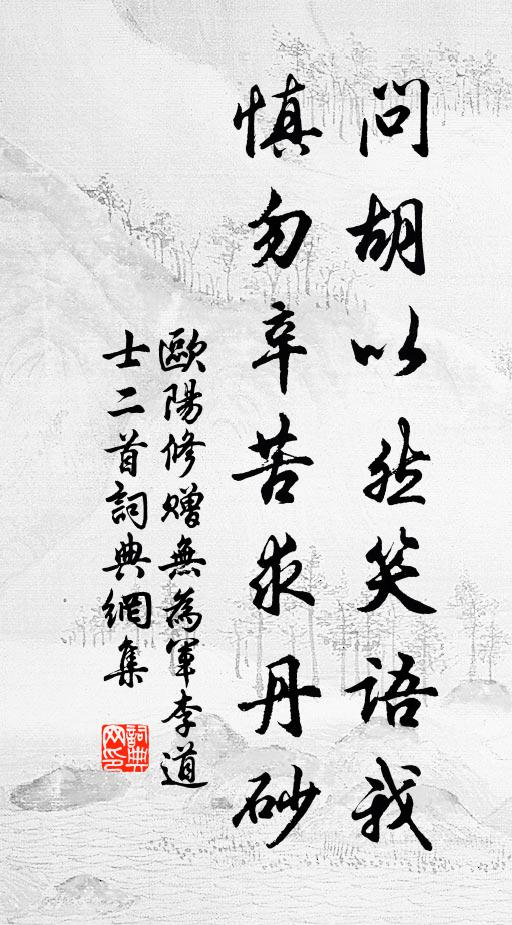 問胡以然笑語我
慎勿辛苦求丹砂
歐陽修贈無為軍李道
士二首詞典網集
詞典
网印